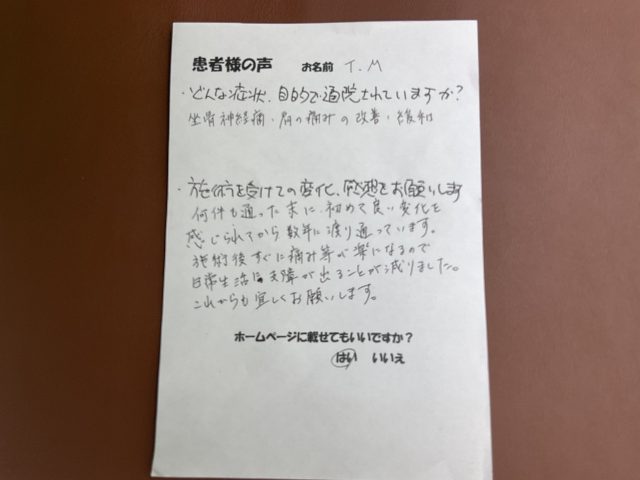 患者様の声 お名前 T.M
・どんな症状、目的で通院されていますか？
坐骨神経痛・肩の痛みの改善・緩和
・施術を受けての変化、感想をお願いします
何件も通った末に、初めて良い変化を
感じられてから数年に渡り通っています。
施術後すぐに痛み等が楽になるので
日常生活に支障が出ることが減りました。
これからも宜しくお願いします。
ホームページに載せてもいいですか？
はい いいえ